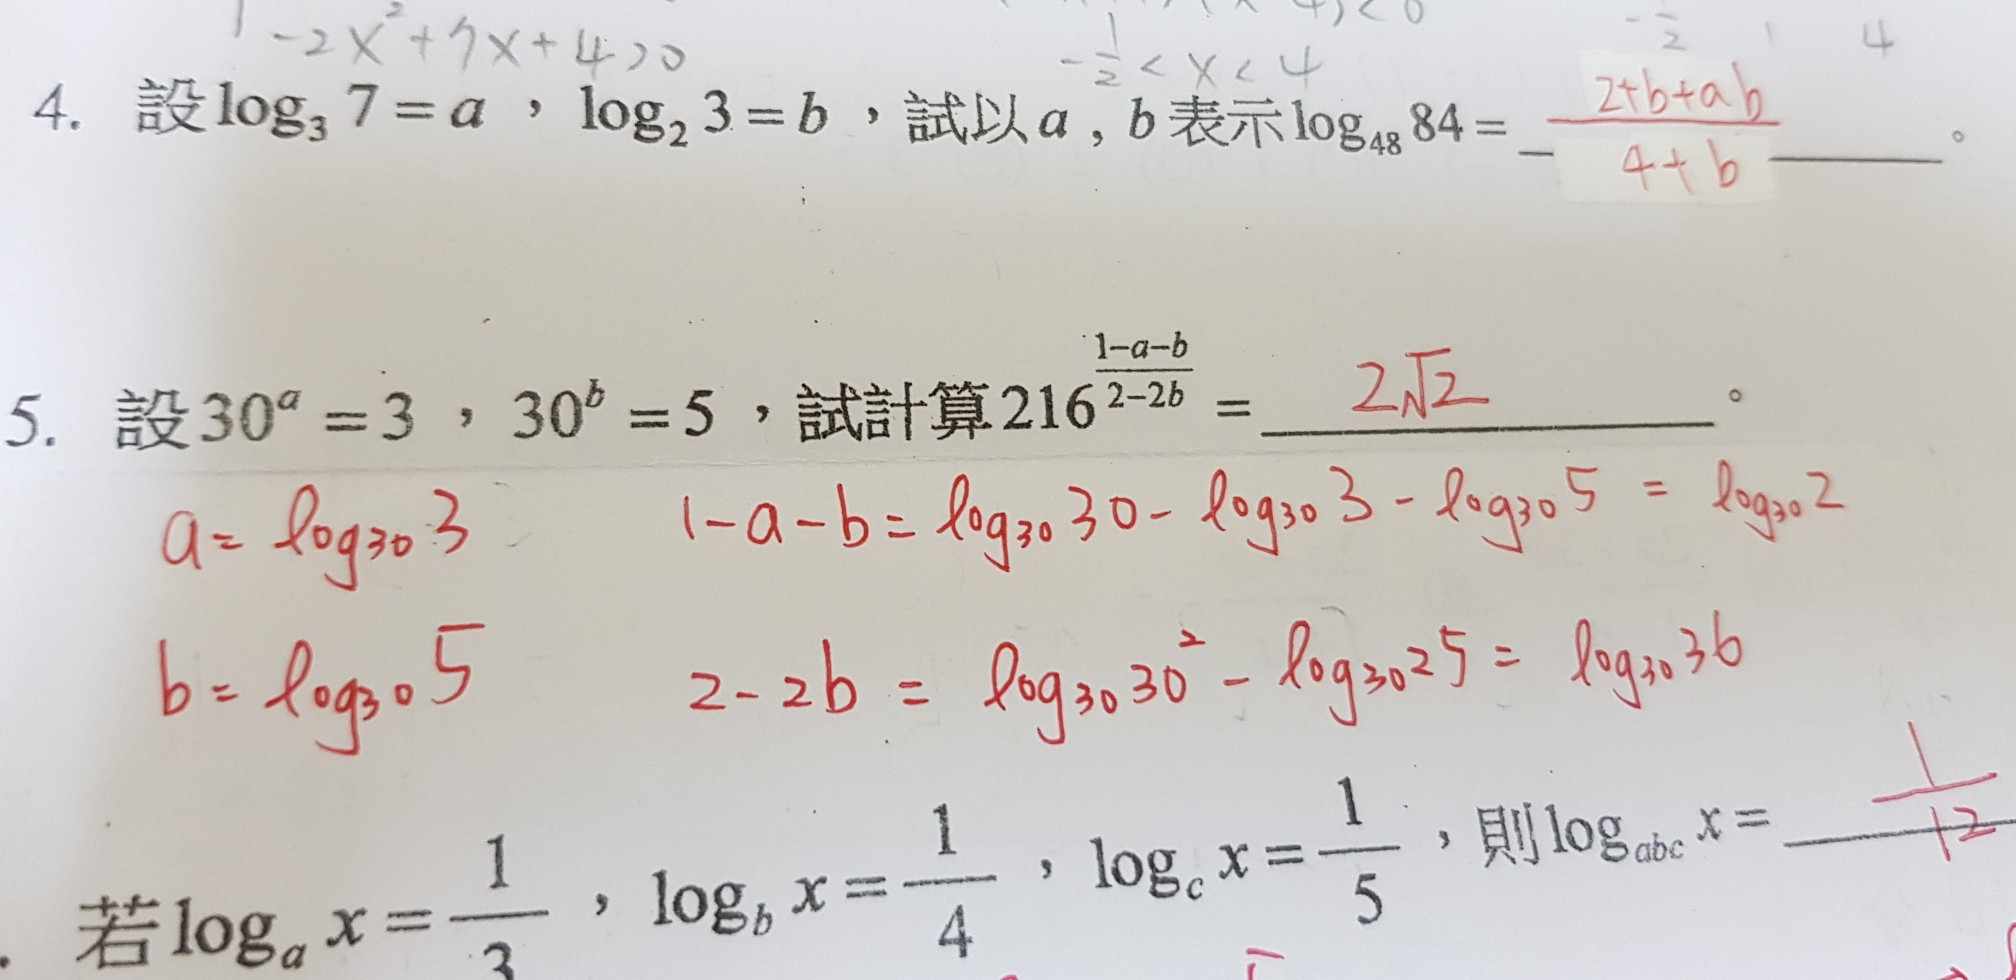 -2x²+7x+4>0
-1/2 < x < 4
-1/2 1 4
4. 設 log₃ 7 = a ， log₂ 3 = b ，試以 a , b 表示 log₄₈ 84 = (2+b+ab)/(4+b) 。
5. 設 30ᵃ = 3 ， 30ᵇ = 5 ，試計算 216^((1-a-b)/(2-2b)) = 2√2 。
a = log₃₀ 3 1-a-b = log₃₀ 30 - log₃₀ 3 - log₃₀ 5 = log₃₀ 2
b = log₃₀ 5 2-2b = log₃₀ 30² - log₃₀ 25 = log₃₀ 36
若 logₐ x = 1/3 ， log_b x = 1/4 ， log_c x = 1/5 ，則 log_abc x = 1/12